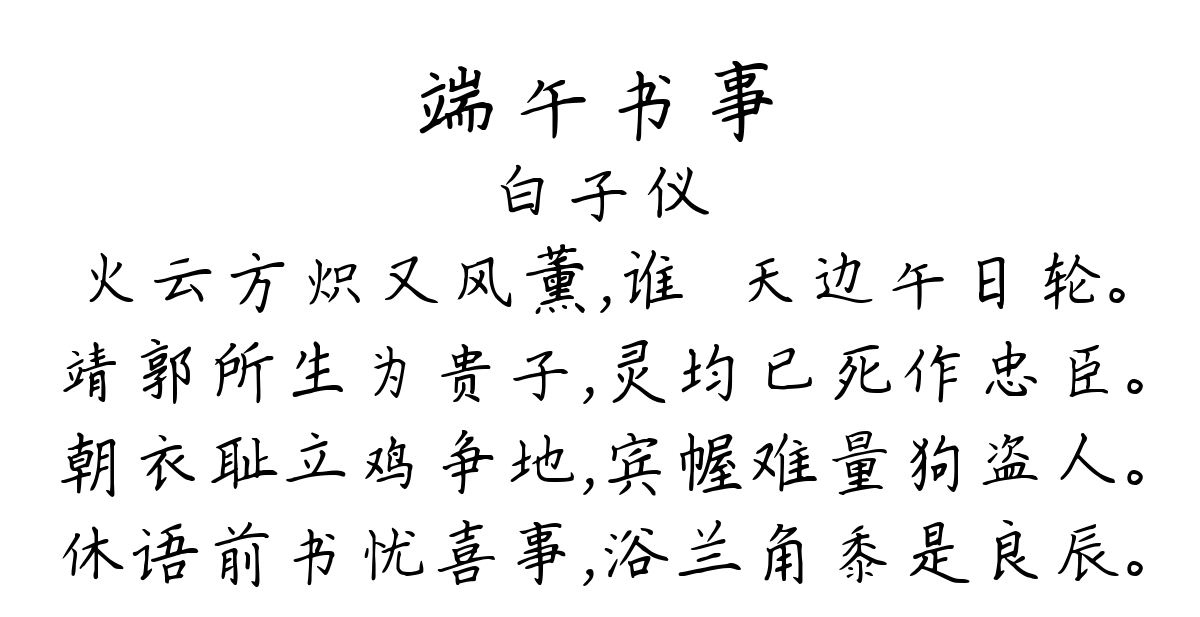 端午书事
白子仪
火云方炽又风薰,谁 天边午日轮。
靖郭所生为贵子,灵均已死作忠臣。
朝衣耻立鸡争地,宾幄难量狗盗人。
休语前书忧喜事,浴兰角黍是良辰。